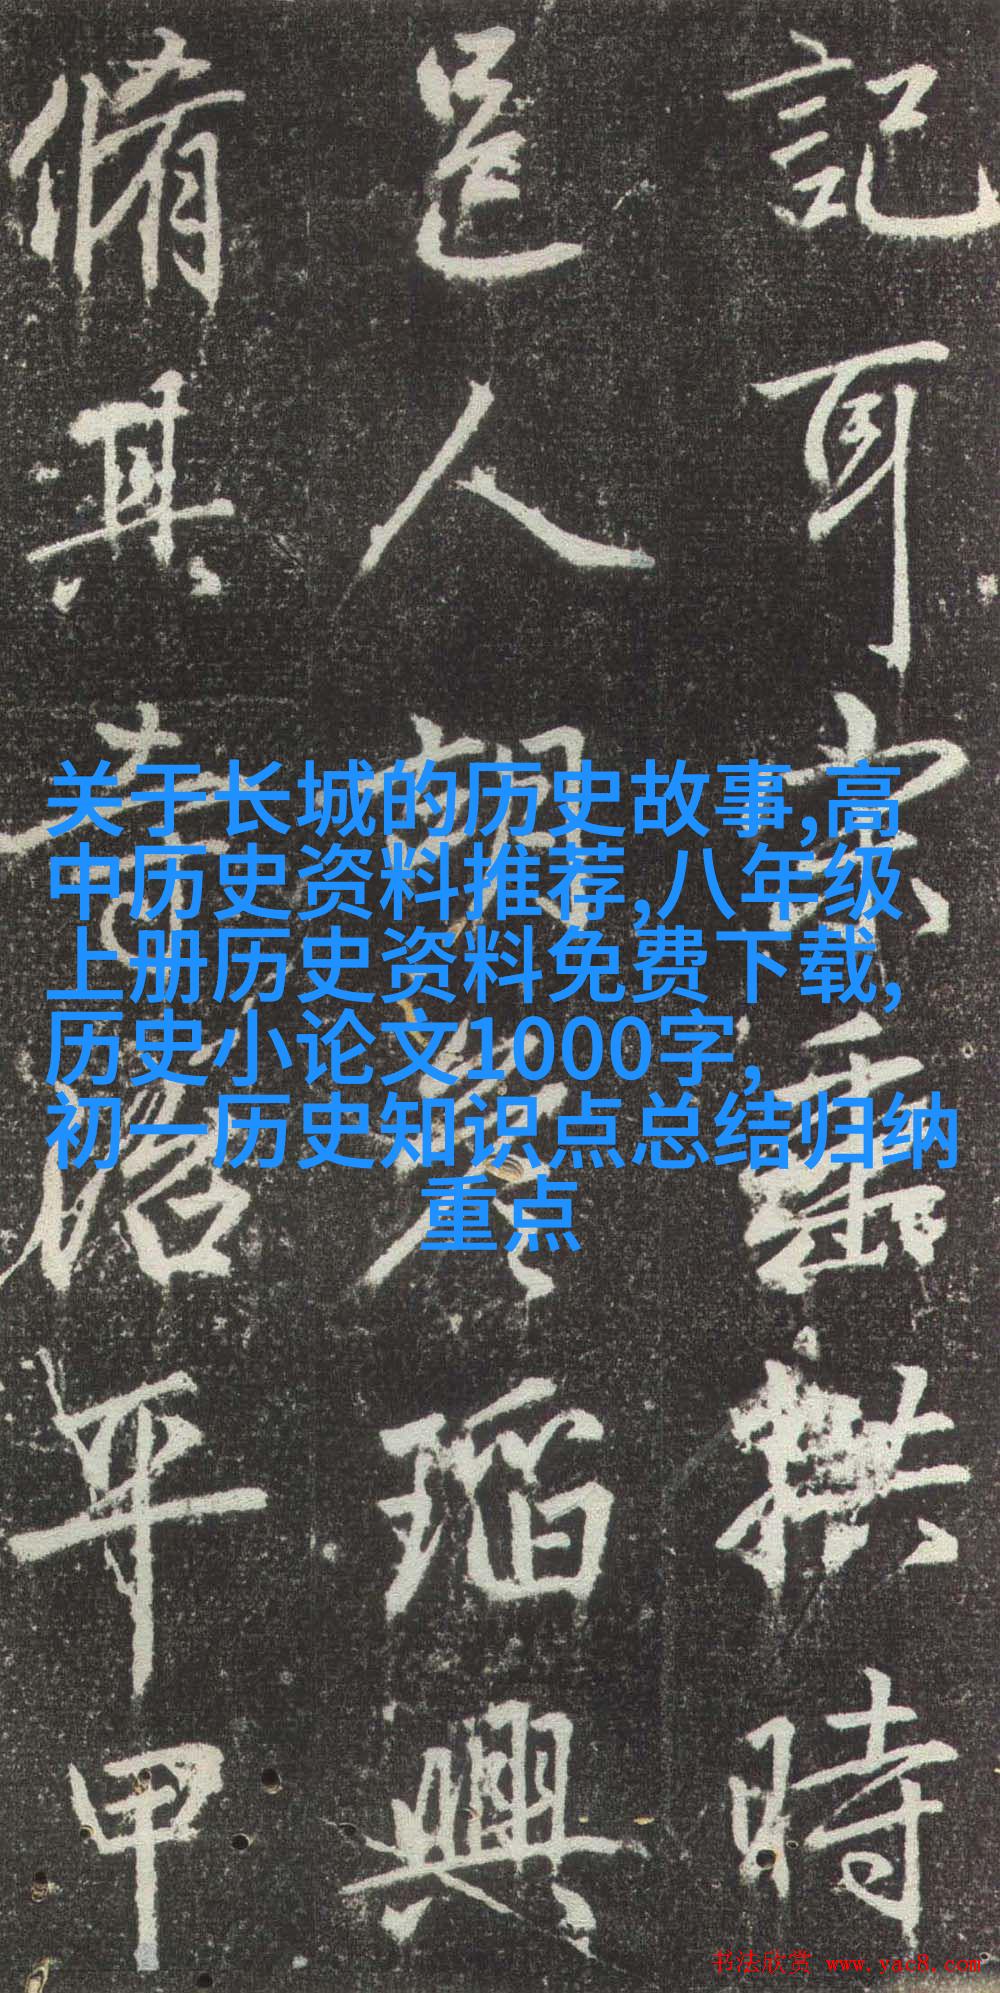 記耳宗垂拱時
邑人
瑫興
脩其
平甲
关于长城的历史故事,高
中历史资料推荐,八年级
上册历史资料免费下载,
历史小论文1000字,
初一历史知识点总结归纳
重点
书法欣赏 www.yac8.com